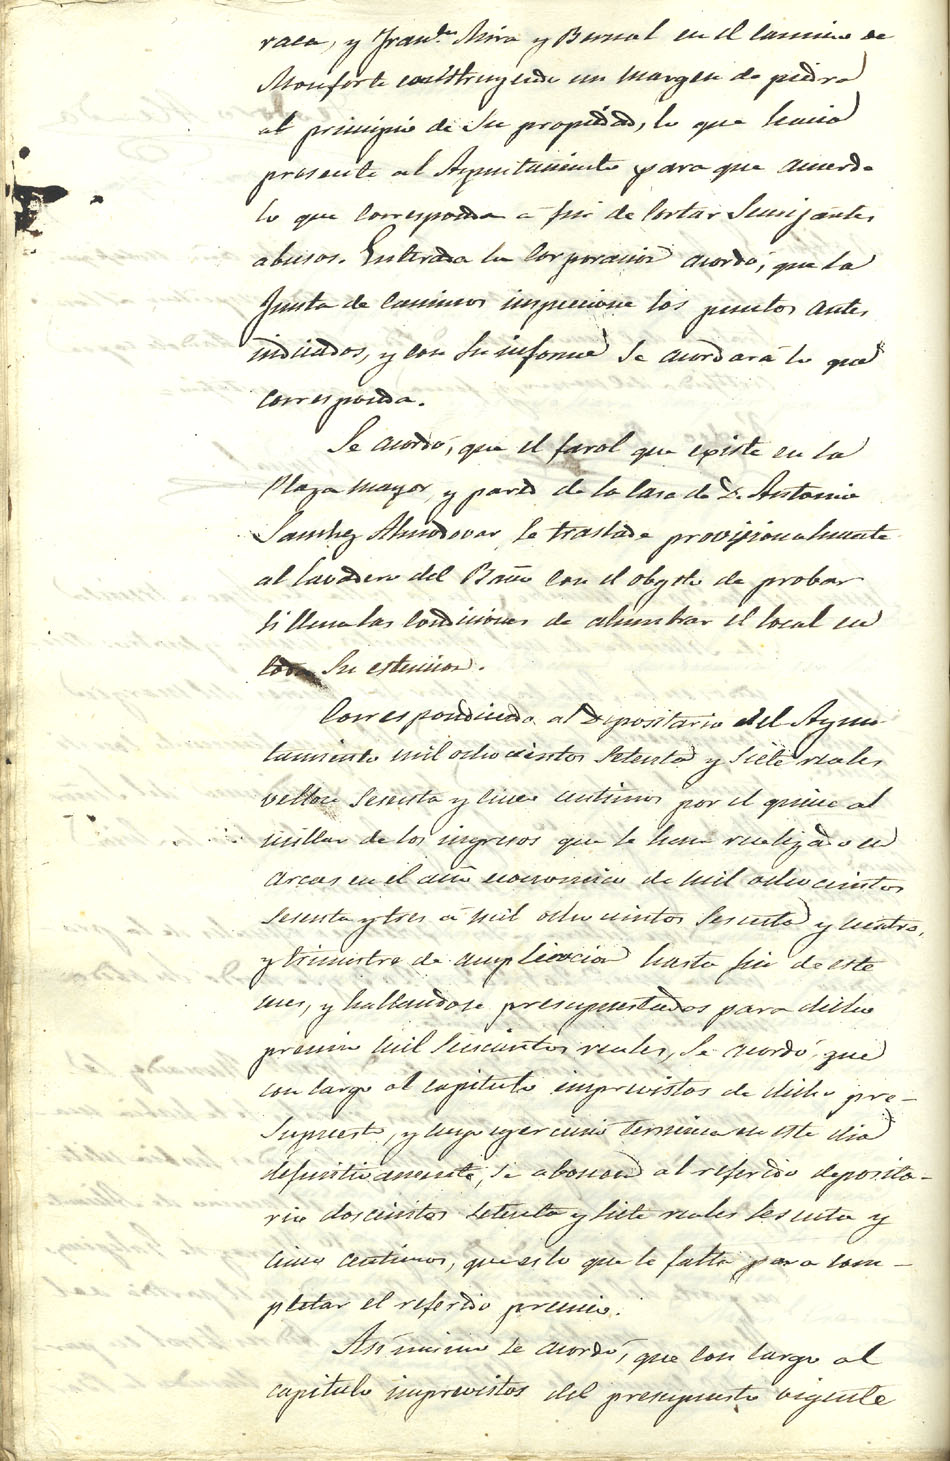 raca, y Fran.co Mira y Bernal en el camino de
Monforte construyendo un margen de piedra
al principio de su propiedad, lo que hacia
presente al Ayuntamiento para que acuerde
lo que corresponda a fin de cortar semejantes
abusos. Enterada la Corporacion acordó, que la
Junta de caminos inspeccione los puntos antes
indicados, y con su informe se acordará lo que
corresponda.
Se acordó, que el farol que existe en la
Plaza mayor y pared de la casa de D. Antonio
Sanchez Almodovar se traslade provisionalmente
al lavadero del Baño con el objeto de probar
si llena las condiciones de alumbrar el local en
toda su estencion.
Correspondiendo al Depositario del Ayun-
tamiento mil ochocientos setenta y siete reales
vellon sesenta y cinco centimos por el quince al
millar de los ingresos que se han realizado en
arcas en el año economico de mil ochocientos
sesenta y tres á mil ochocientos sesenta y cuatro,
y trimestre de ampliacion hasta fin de este
mes, y hallandose presupuestados para dicho
premio mil seiscientos reales, se acordó que
con cargo al capitulo imprevistos de dicho pre-
supuesto, y cuyo egercicio termina en este dia
definitivamente, se abonen al referido deposita-
rio doscientos setenta y siete reales sesenta y
cinco centimos, que es lo que le falta para com-
pletar el referido premio.
Asi mismo se acordó, que con cargo al
capitulo imprevistos del presupuesto vigente